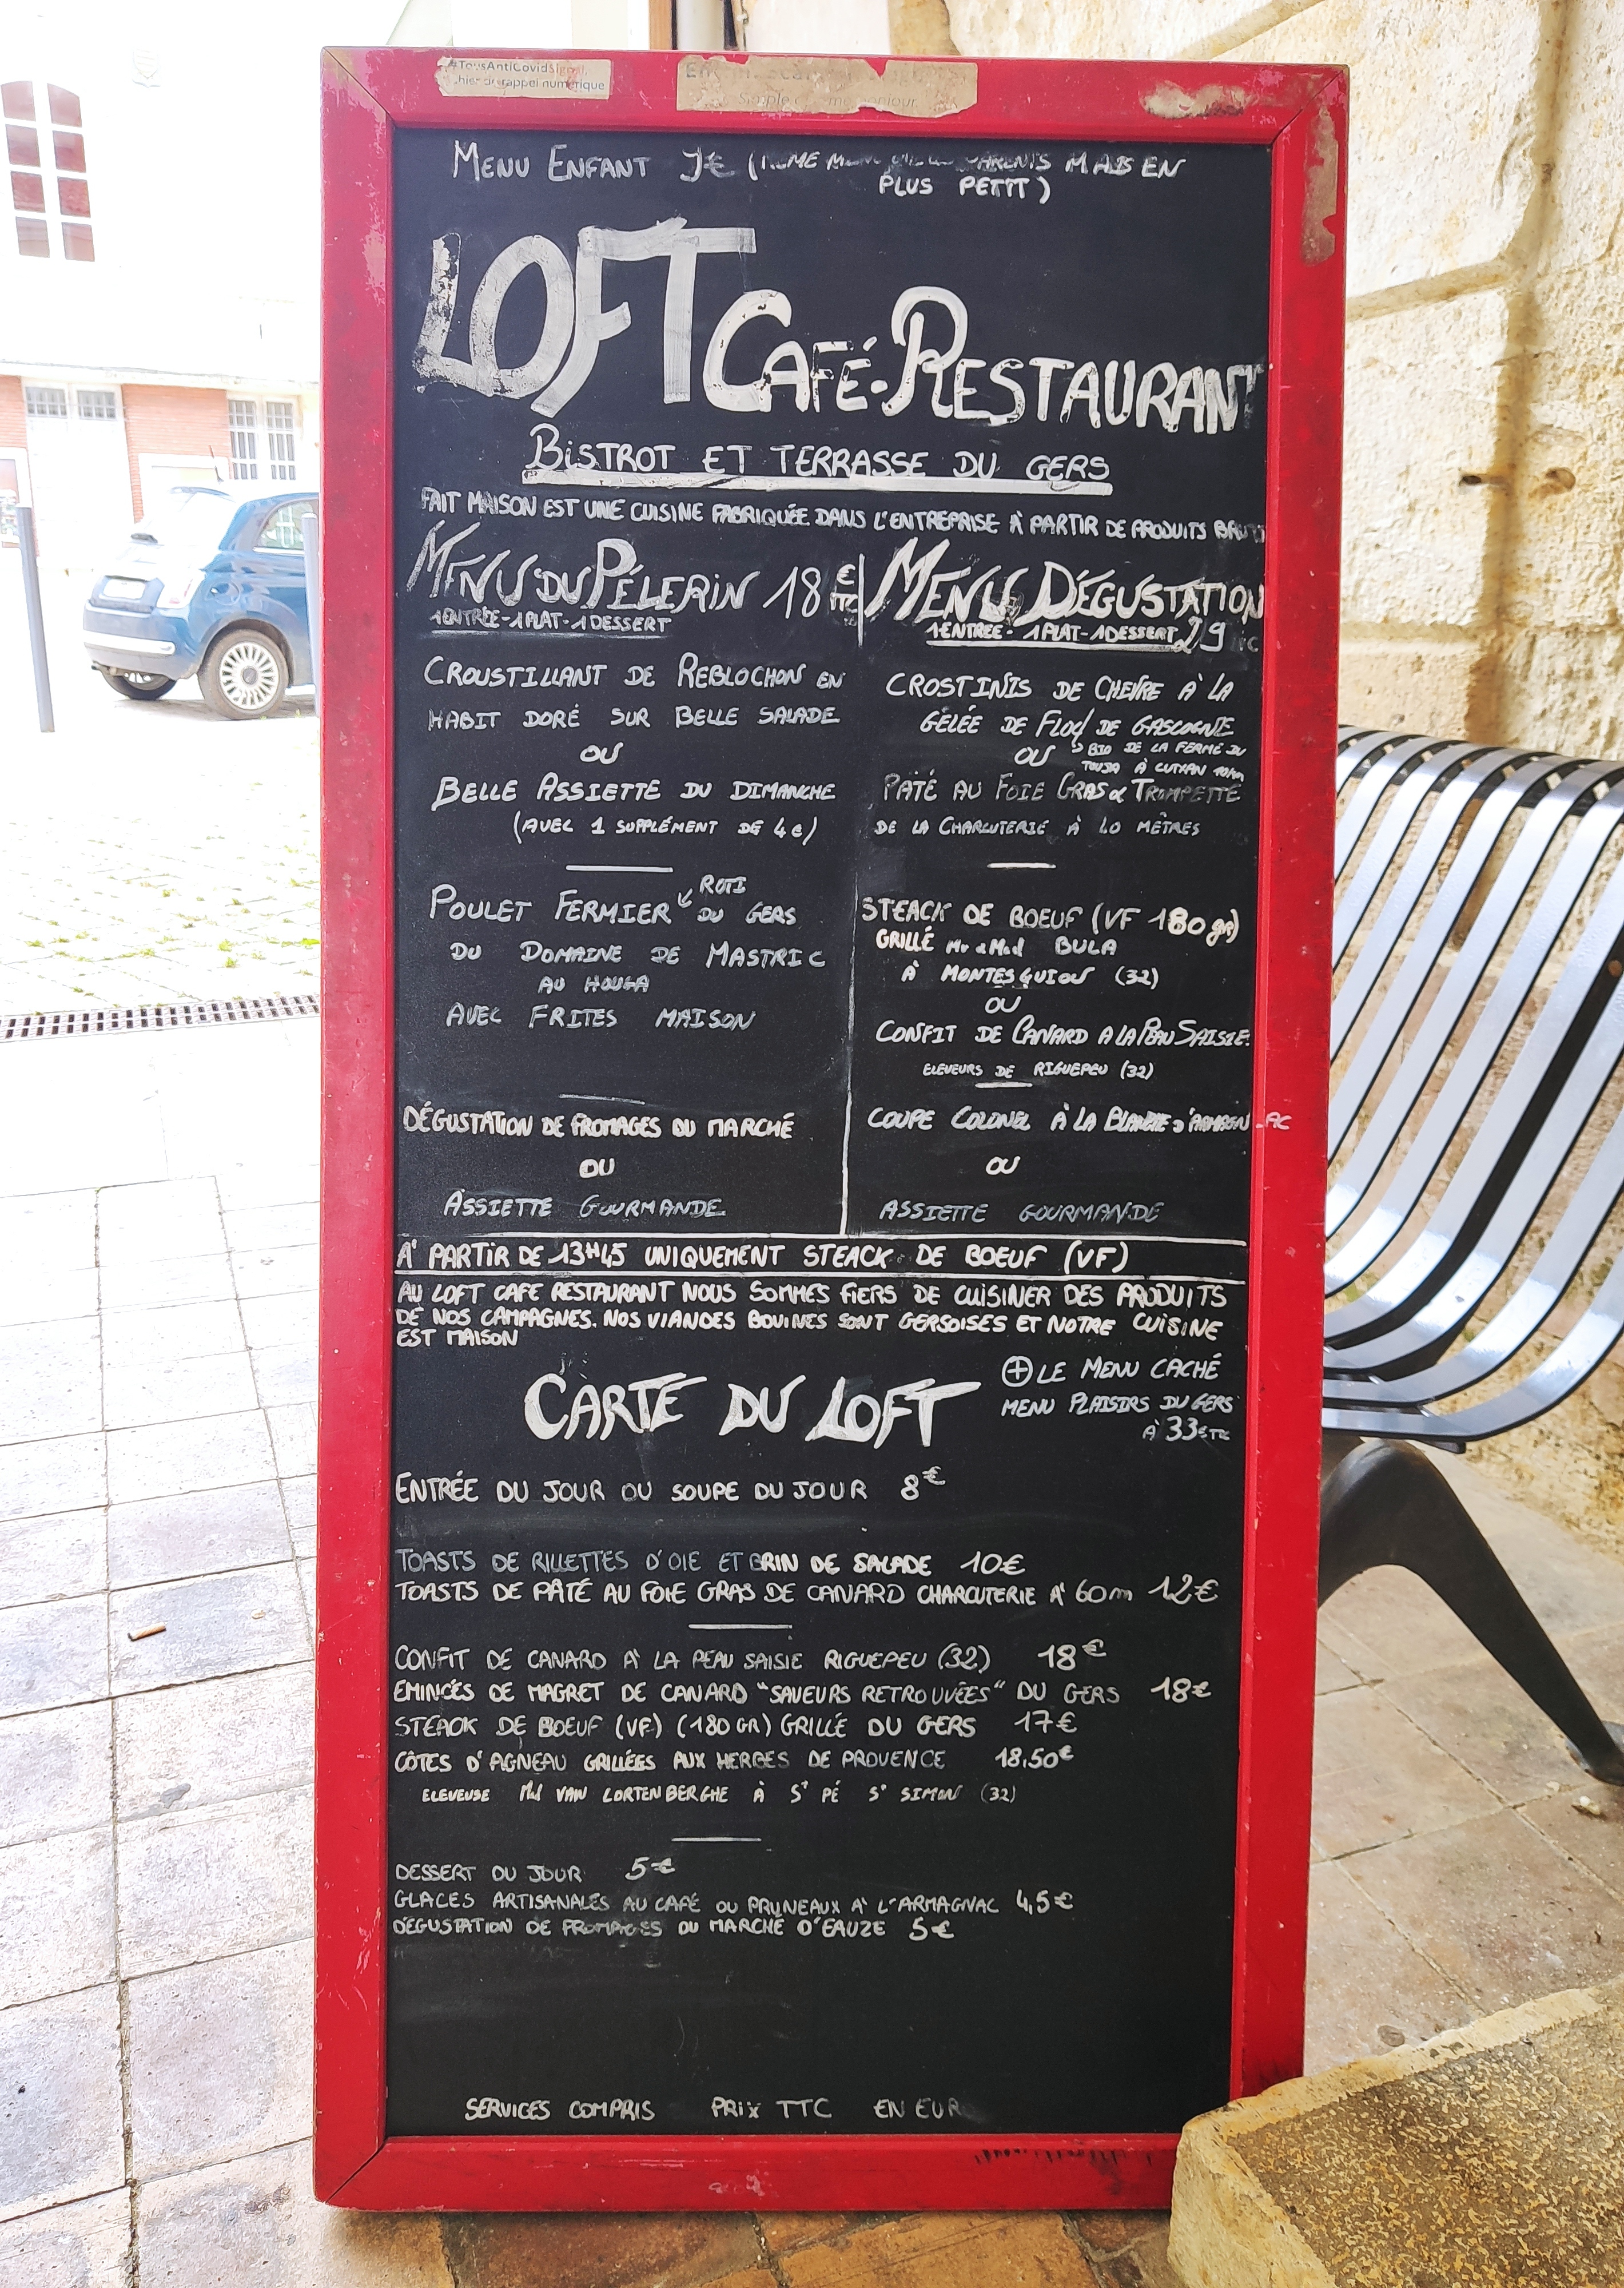 #TousAntiCovidSignal,
hier de rappel numérique
Simple
MENU ENFANT 9€ (MAIS EN
PLUS PETIT)
LOFT CAFÉ-RESTAURANT
BISTROT ET TERRASSE DU GERS
FAIT MAISON EST UNE CUISINE FABRIQUÉE DANS L'ENTREPRISE À PARTIR DE PRODUITS BRUTS
MENU DU PÉLERIN 18 € TTC
1 ENTRÉE - 1 PLAT - 1 DESSERT
CROUSTILLANT DE REBLOCHON EN
HABIT DORÉ SUR BELLE SALADE
OU
BELLE ASSIETTE DU DIMANCHE
(AVEC 1 SUPPLÉMENT DE 4€)
POULET FERMIER ROTI
DU GERS
DU DOMAINE DE MASTRIC
AU HOUGA
AVEC FRITES MAISON
DÉGUSTATION DE FROMAGES DU MARCHÉ
OU
ASSIETTE GOURMANDE
MENU DÉGUSTATION
1 ENTRÉE - 1 PLAT - 1 DESSERT 29
CROSTINIS DE CHEVRE À LA
GELÉE DE FLOC DE GASCOGNE
OU BIO DE LA FERME DU
À CUTXAN 10km
PATÉ AU FOIE GRAS & TROMPETTE
DE LA CHARCUTERIE À 60 MÈTRES
STEACK DE BOEUF (VF 180 gr)
GRILLÉ Mr & Md BULA
À MONTESQUIOU (32)
OU
CONFIT DE CANARD A LA PEAU SAISIE.
ELEVEURS DE RIGUEPEU (32)
COUPE COLONEL À LA BLANCHE D'ARMAGNAC
OU
ASSIETTE GOURMANDE
A' PARTIR DE 13H45 UNIQUEMENT STEACK DE BOEUF (VF)
AU LOFT CAFE RESTAURANT NOUS SOMMES FIERS DE CUISINER DES PRODUITS
DE NOS CAMPAGNES. NOS VIANDES BOVINES SONT GERSOISES ET NOTRE CUISINE
EST MAISON
CARTE DU LOFT
⊕ LE MENU CACHÉ
MENU PLAISIRS DU GERS
À 33€ TTC
ENTRÉE DU JOUR OU SOUPE DU JOUR 8€
TOASTS DE RILLETTES D'OIE ET BRIN DE SALADE 10€
TOASTS DE PÂTÉ AU FOIE GRAS DE CANARD CHARCUTERIE A' 60m 12€
CONFIT DE CANARD A' LA PEAU SAISIE RIGUEPEU (32) 18€
EMINCÉS DE MAGRET DE CANARD "SAVEURS RETROUVÉES" DU GERS 18€
STEACK DE BOEUF (VF) (180 GR) GRILLÉ DU GERS 17€
CÔTES D'AGNEAU GRILLÉES AUX HERBES DE PROVENCE 18,50€
ELEVEUSE Md VAN LORTENBERGHE À ST PÉ ST SIMON (32)
DESSERT DU JOUR 5€
GLACES ARTISANALES AU CAFÉ OU PRUNEAUX A' L'ARMAGNAC 4,5€
DEGUSTATION DE FROMAGES DU MARCHÉ D'EAUZE 5€
SERVICES COMPRIS PRIX TTC EN EUR